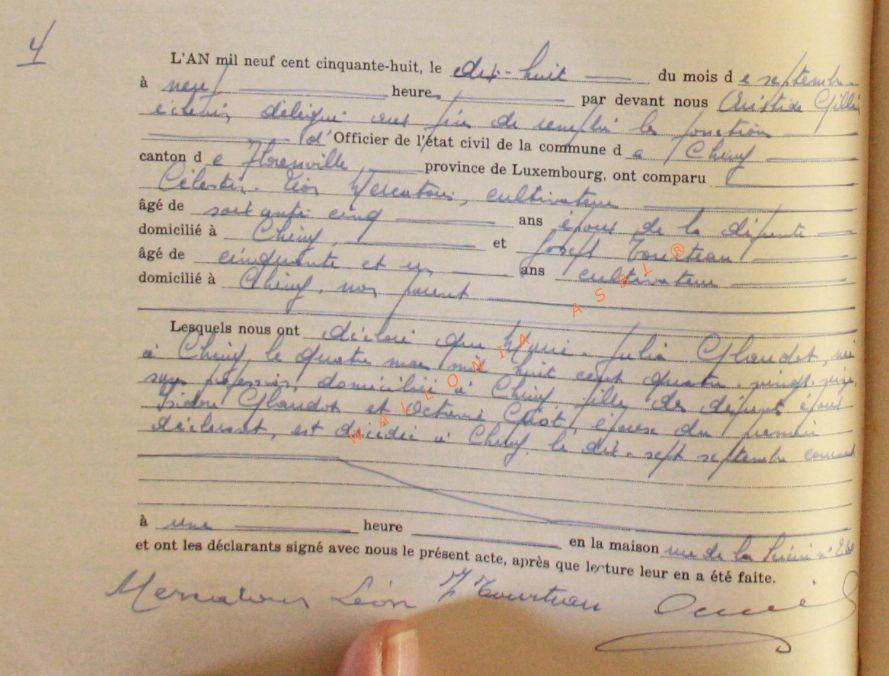 4
L'AN mil neuf cent cinquante-huit, le dix-huit du mois d e septembre
à neuf heures par devant nous Aristide Gillet
échevin délégué aux fins de remplir les fonctions
d' Officier de l'état civil de la commune d e Chiny
canton d e Florenville, province de Luxembourg, ont comparu
Célestin-Léon Mercatoris, cultivateur
âgé de soixante cinq ans époux de la défunte
domicilié à Chiny, et Joseph Tourteau
âgé de cinquante et un ans cultivateur
domicilié à Chiny, non parent
Lesquels nous ont déclaré que Marie-Julia Glaudot, née
à Chiny le quatre mai mil huit cent quatre-vingt
sans profession, domiciliée à Chiny fille des défunts époux
Isidore Glaudot et Octavie, épouse du premier
déclarant, est décédée à Chiny, le dix-sept septembre courant
à une heure en la maison rue de la n°
et ont les déclarants signé avec nous le présent acte, après que lecture leur en a été faite.
Léon J Tourteau
WALLONIA ASBL®